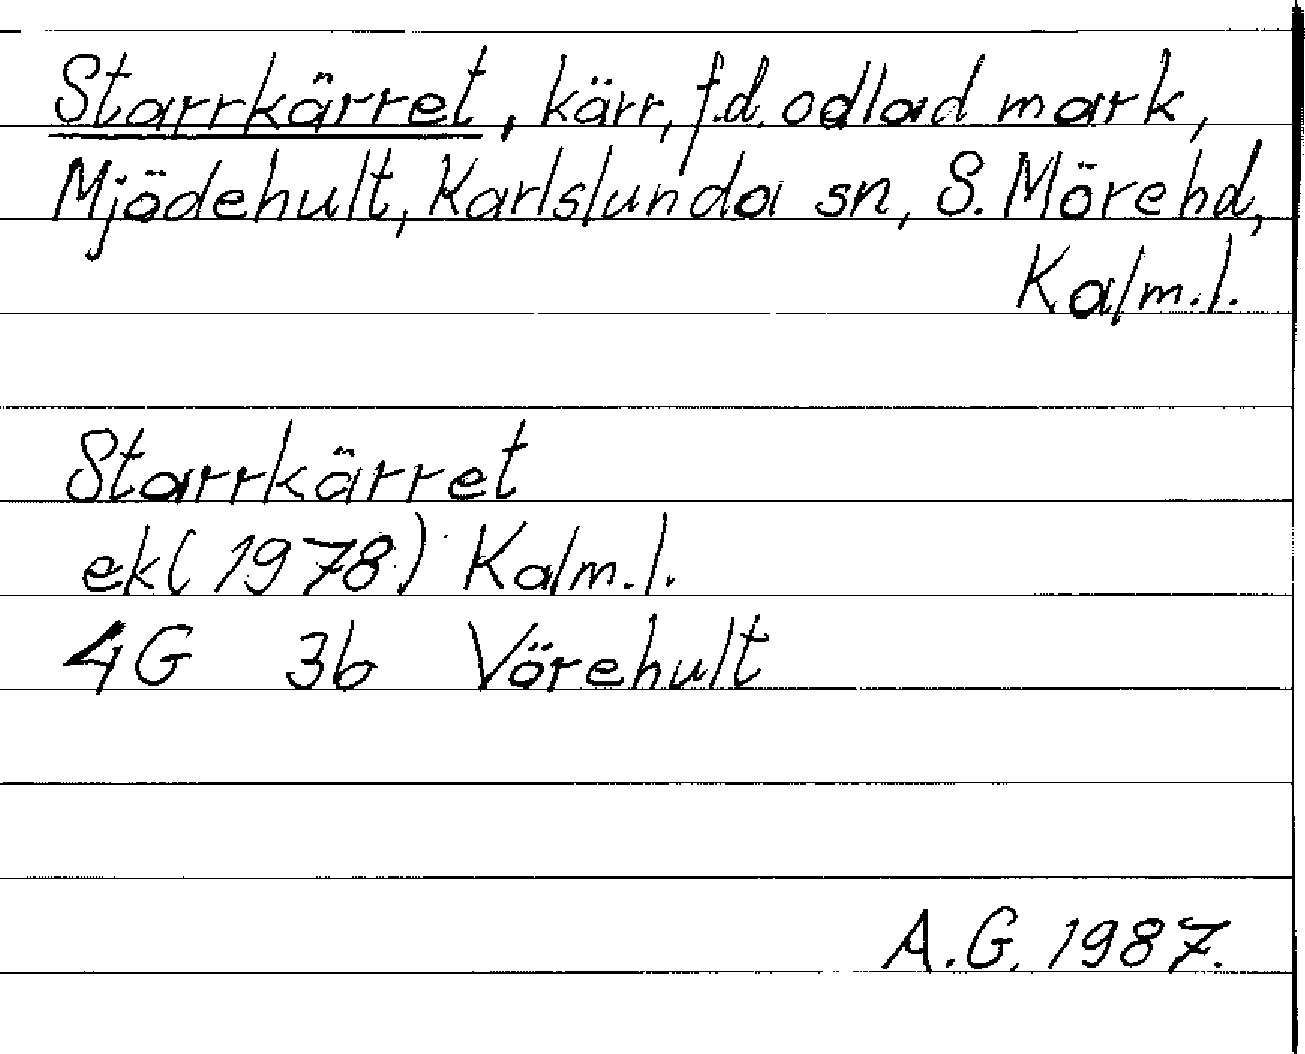 Starrkärret, kärr, f.d. odlad mark,
Mjödehult, Karlslunda sn, S. Möre hd,
Kalm.l.
Starrkärret
ek(1978) Kalm.l.
4G 3b Vörehult
A.G. 1987.